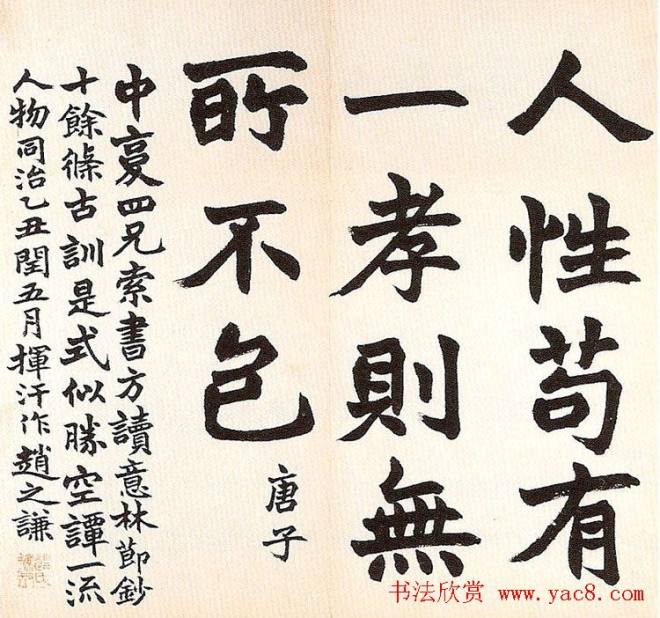 人性苟有
一孝則無
所不包
唐子
中夏四兄索書方讀意林節鈔
十餘條古訓是式似勝空譚一流
人物同治乙丑閏五月揮汗作趙之謙
书法欣赏 www.yac8.com